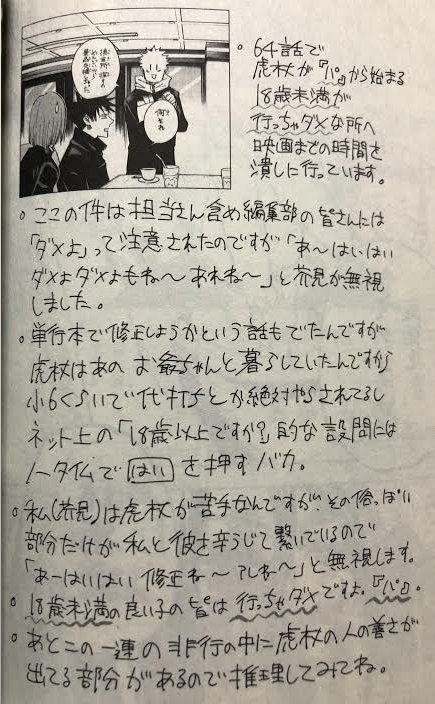 何それ
○ 64話で
虎杖が『パ』から始まる
18歳未満が
行っちゃダメな所へ
映画までの時間を
潰しに行っています。
○ ここの件は担当さん含め編集部の皆さんには
「ダメよ」って注意されたのですが「あ〜はいはい
ダメよダメよもね〜あれね〜」と芥見が無視
しました。
○ 単行本で修正しようかという話もでたんですが
虎杖はあのお爺ちゃんと暮らしていたんですから
小6くらいで代打ちとか絶対やらされてるし
ネット上の「18歳以上ですか?」的な設問には
ノータイムで はい を押すバカ。
○ 私(芥見)は虎杖が苦手なんですが、その俗っぽい
部分だけが私と彼を辛うじて繋いでいるので
「あーはいはい 修正ね〜 アレね〜」と無視します。
○ 18歳未満の良い子の皆は行っちゃダメですよ。『パ』。
○ あとこの一連の非行の中に虎杖の人の善さが
出てる部分があるので推理してみてね。